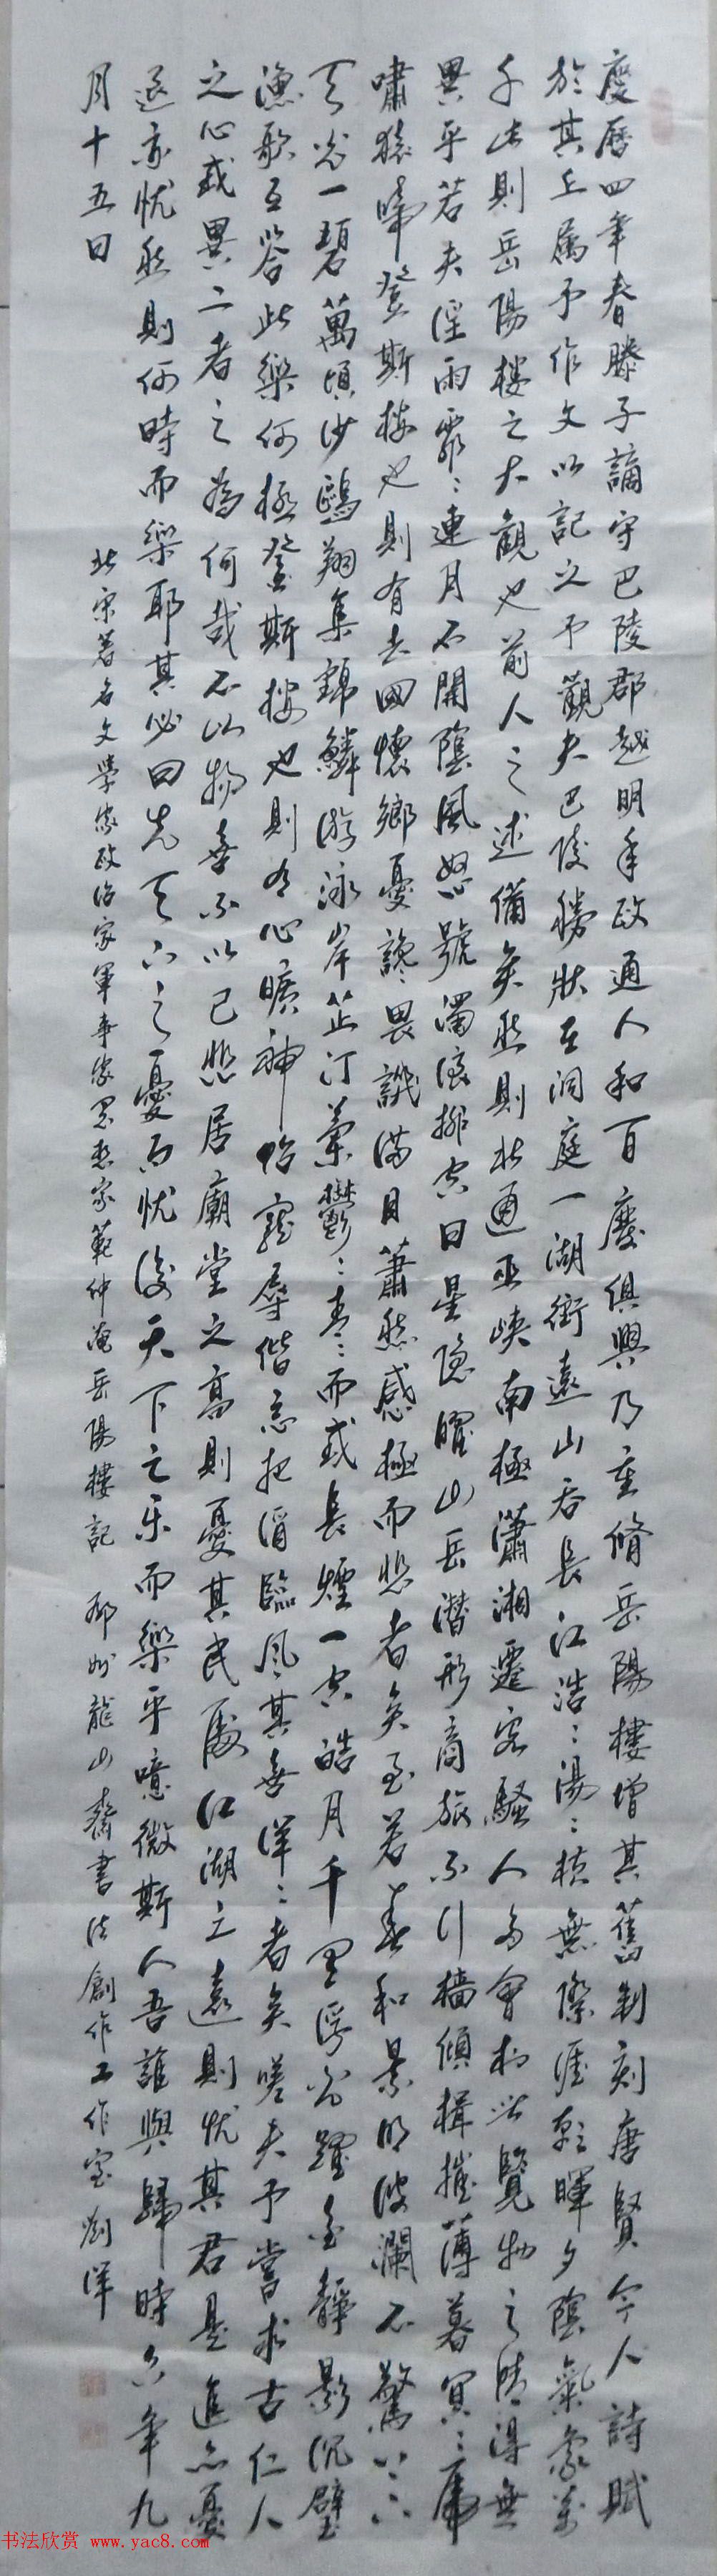 慶曆四年春滕子謫守巴陵郡越明年政通人和百廢俱興乃重脩岳陽樓增其舊制刻唐賢今人詩賦
於其上屬予作文以記之予觀夫巴陵勝狀在洞庭一湖銜遠山吞長江浩〻湯〻橫無際涯朝暉夕陰氣象萬
千此則岳陽樓之大觀也前人之述備矣然則北通巫峽南極瀟湘遷客騷人多會於此覽物之情得無
異乎若夫淫雨霏〻連月不開陰風怒號濁浪排空日星隱曜山岳潛形商旅不行檣傾楫摧薄暮冥〻虎
嘯猿啼登斯樓也則有去國懷鄉憂讒畏譏滿目蕭然感極而悲者矣至若春和景明波瀾不驚上下
天光一碧萬頃沙鷗翔集錦鱗游泳岸芷汀蘭鬱〻青〻而或長煙一空皓月千里浮光躍金靜影沉璧
漁歌互答此樂何極登斯樓也則有心曠神怡寵辱偕忘把酒臨風其喜洋〻者矣嗟夫予嘗求古仁人
之心或異二者之為何哉不以物喜不以己悲居廟堂之高則憂其民處江湖之遠則憂其君是進亦憂
退亦憂然則何時而樂耶其必曰先天下之憂而憂後天下之樂而樂乎噫微斯人吾誰與歸時六年九
月十五日
北宋著名文學家政治家軍事家思想家範仲淹岳陽樓記 鄧州龍山齋書法創作工作室劉洋
书法欣赏 www.yac8.com